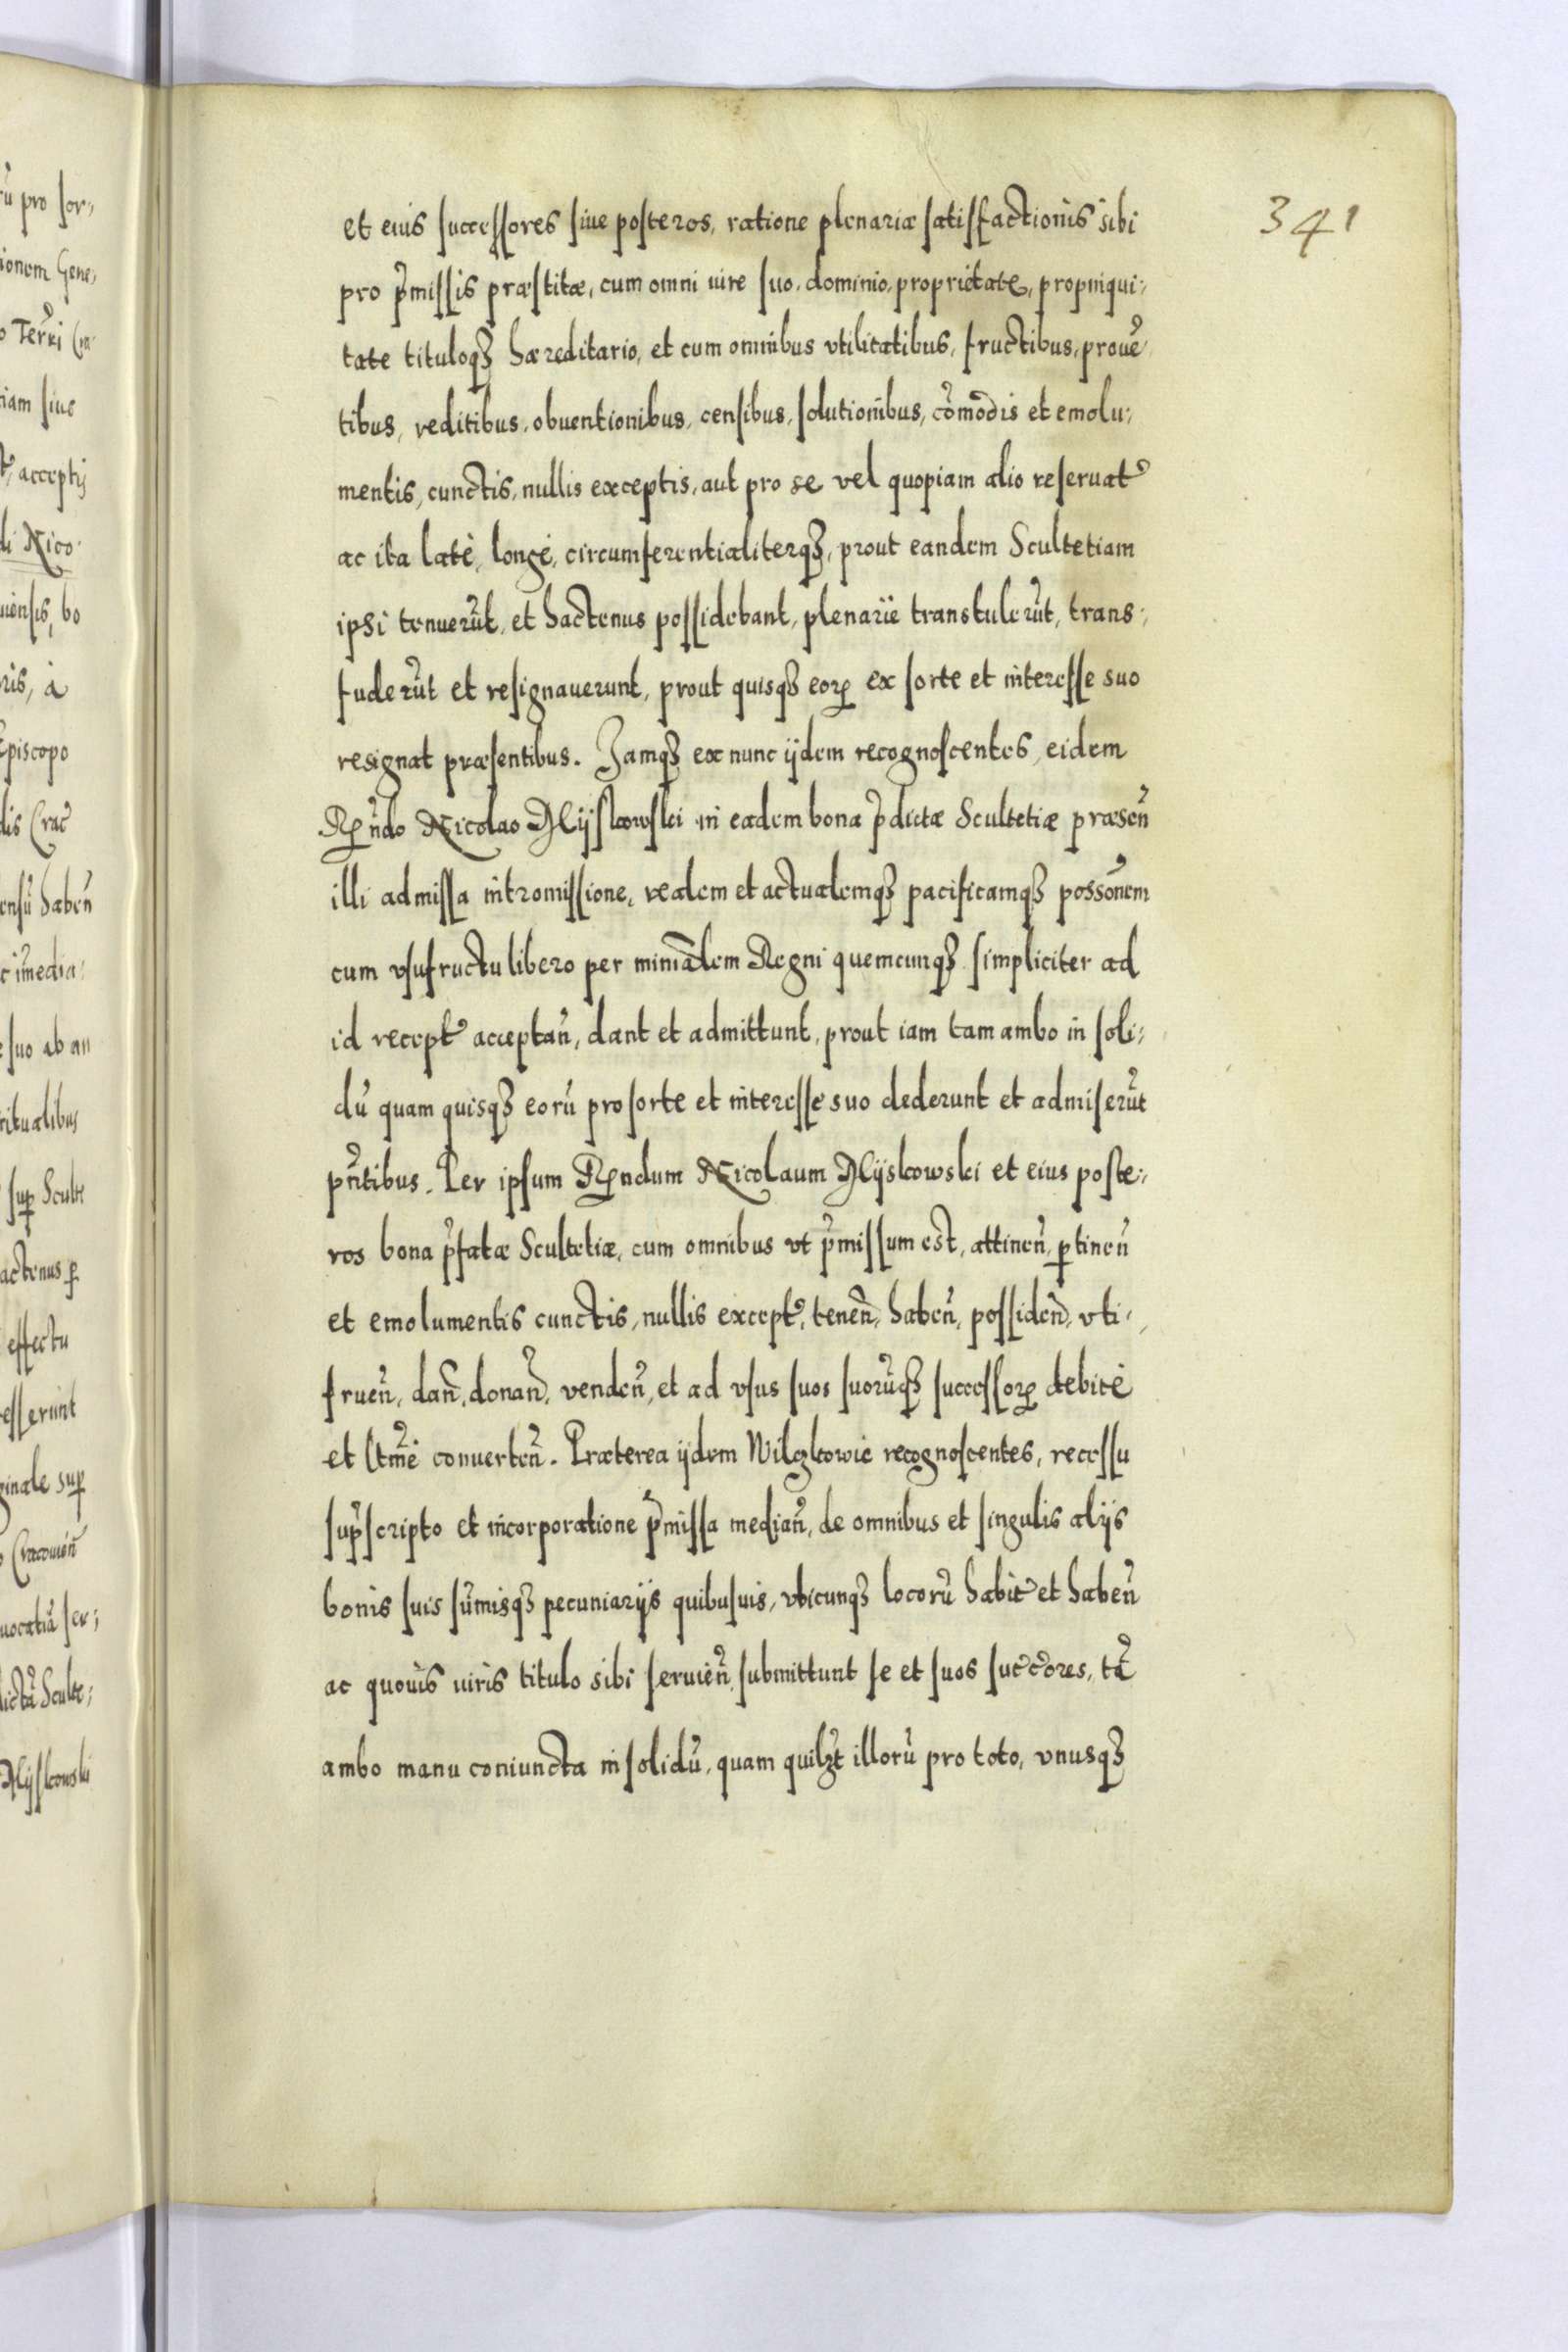 341
et eius successores siue posteros, ratione plenariæ satisfactionis sibi
pro p̃missis præstitæ, cum omni iure suo, dominio, proprietate, propinqui-
tate tituloqꝫ hæreditario, et cum omnibus vtilitatibus, fructibus, proue͂
tibus, reditibus, obuentionibus, censibus, solutionibus, co͂modis et emolu-
mentis, cunctis, nullis exceptis, aut pro se vel quopiam alio reseruat͂
ac ita latè, longè, circumferentialiterqꝫ, prout eandem Scultetiam
ipsi tenueru͂t, et hactenus possidebant, plenariè transtuleru͂t, trans-
fuderu͂t et resignauerunt, prout quisqꝫ eoꝝ ex sorte et interesse suo
resignat præsentibus. Jamqꝫ ex nunc ijdem recognoscentes, eidem
Rꝑn͂do Nicolao Mijskowski in eadem bona p̃dictæ Scultetiæ præsen͂
illi admissa intromissione, realem et actualemqꝫ pacificamqꝫ posso͂nem
cum vsufructu libero per minia͂lem Regni quemcunqꝫ simpliciter ad
id recept͂ acceptan͂, dant et admittunt, prout iam tam ambo in soli-
du͂ quam quisqꝫ eoru͂ pro sorte et interesse suo dederunt et admiseru͂t
pn͂tibus. Per ipsum Rꝑndum Nicolaum Mijskowski et eius poste-
ros bona p̃fatæ Scultetiæ, cum omnibus vt p̃missum est, attinen͂, ꝑtinen͂
et emolumentis cunctis, nullis except͂, tenen͂, haben͂, possiden͂, vti-
fruen͂, dan͂, donan͂, venden͂, et ad vsus suos suoru͂qꝫ successoꝝ debitè
et ltm͂è conuerten͂. Præterea ijdem Wilczkowie recognoscentes, recessu
sup̃scripto et incorporatione p̃missa median͂, de omnibus et singulis alijs
bonis suis su͂misqꝫ pecuniarijs quibusuis, vbicunqꝫ locoru͂ habit͂ et haben͂
ac quouis iuris titulo sibi seruien͂, submittunt se et suos succ͂ores, ta͂
ambo manu coniuncta in solidu͂, quam quilꝫt illoru͂ pro toto, vnusqꝫ